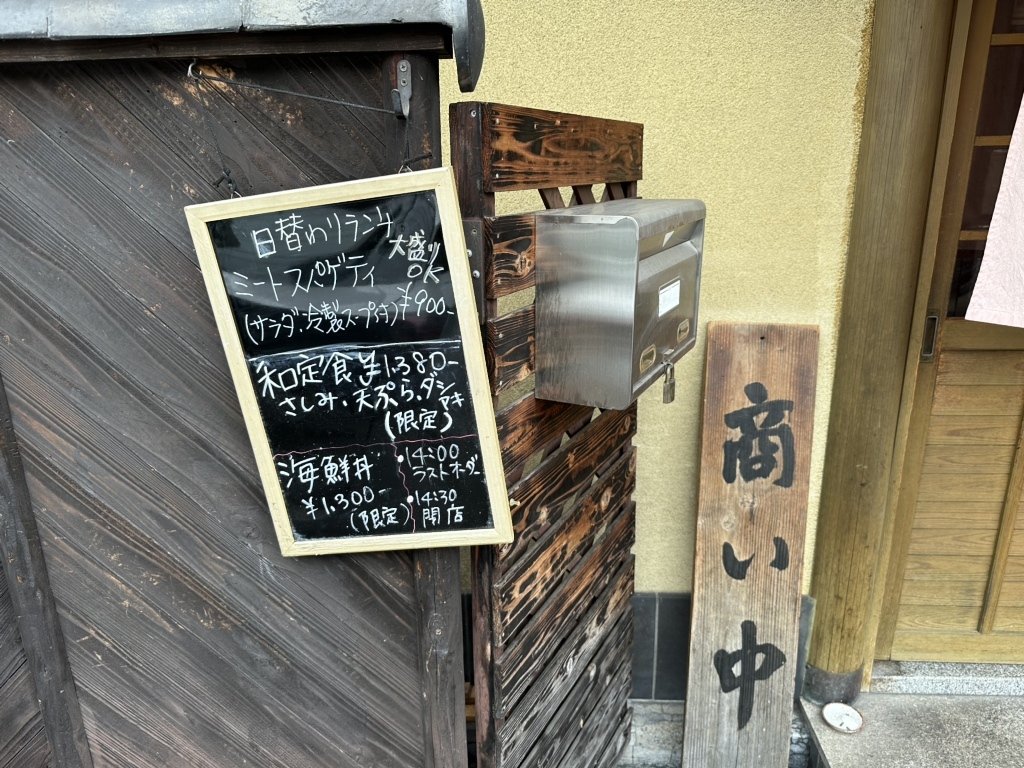 日替わりランチ
大盛り
OK
ミートスパゲティ
(サラダ、冷製スープ付)¥900-
和定食¥1,380-
さしみ、天ぷら、ダシマキ
(限定)
海鮮丼
¥1,300-
(限定)
14:00
ラストオーダー
14:30
閉店
商い中